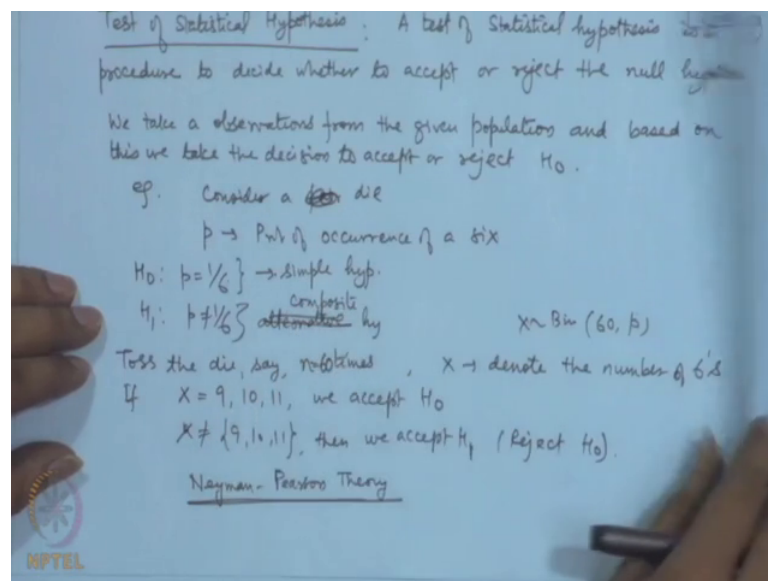 Test of Statistical Hypothesis : A test of Statistical hypothesis is a
procedure to decide whether to accept or reject the null
We take a observations from the given population and based on
this we take the decision to accept or reject H0.
eg. Consider a die
p → Prob of occurrence of a six
H0: p=1/6 } → simple hyp.
H1: p≠1/6 } composite hy
X~ Bin (60, p)
Toss the die, say, 60 times , X → denote the number of 6's
If X = 9, 10, 11, we accept H0
X ≠ {9,10,11}, then we accept H1 (Reject H0).
Neyman-Pearson Theory
NPTEL